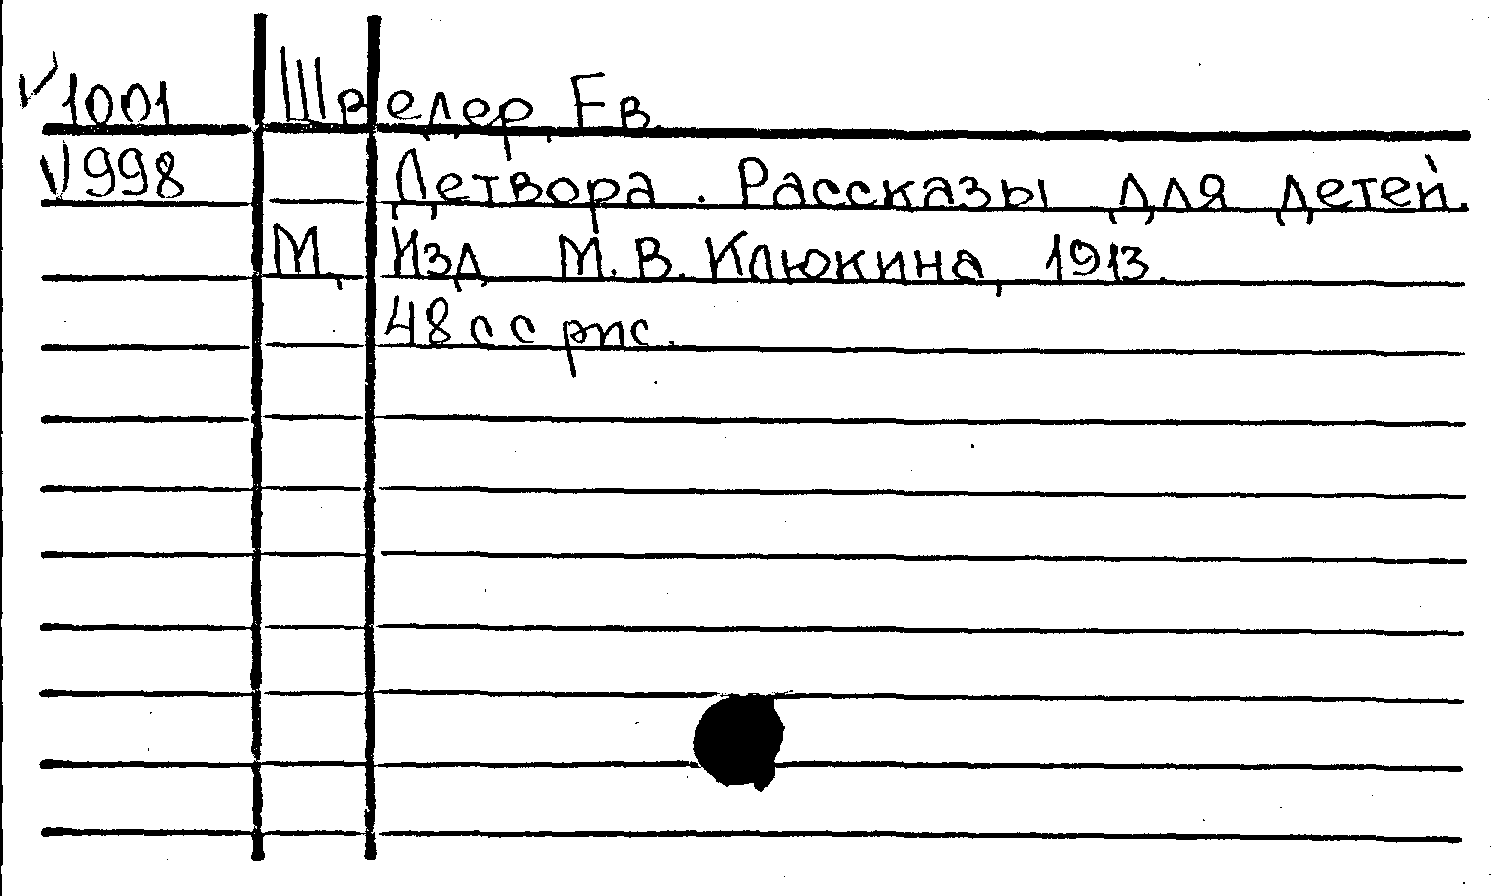 √1001 Шредер, Ев.
√998 Детвора. Рассказы для детей.
М, Изд М. В. Клюкина, 1913.
48 с с рис.